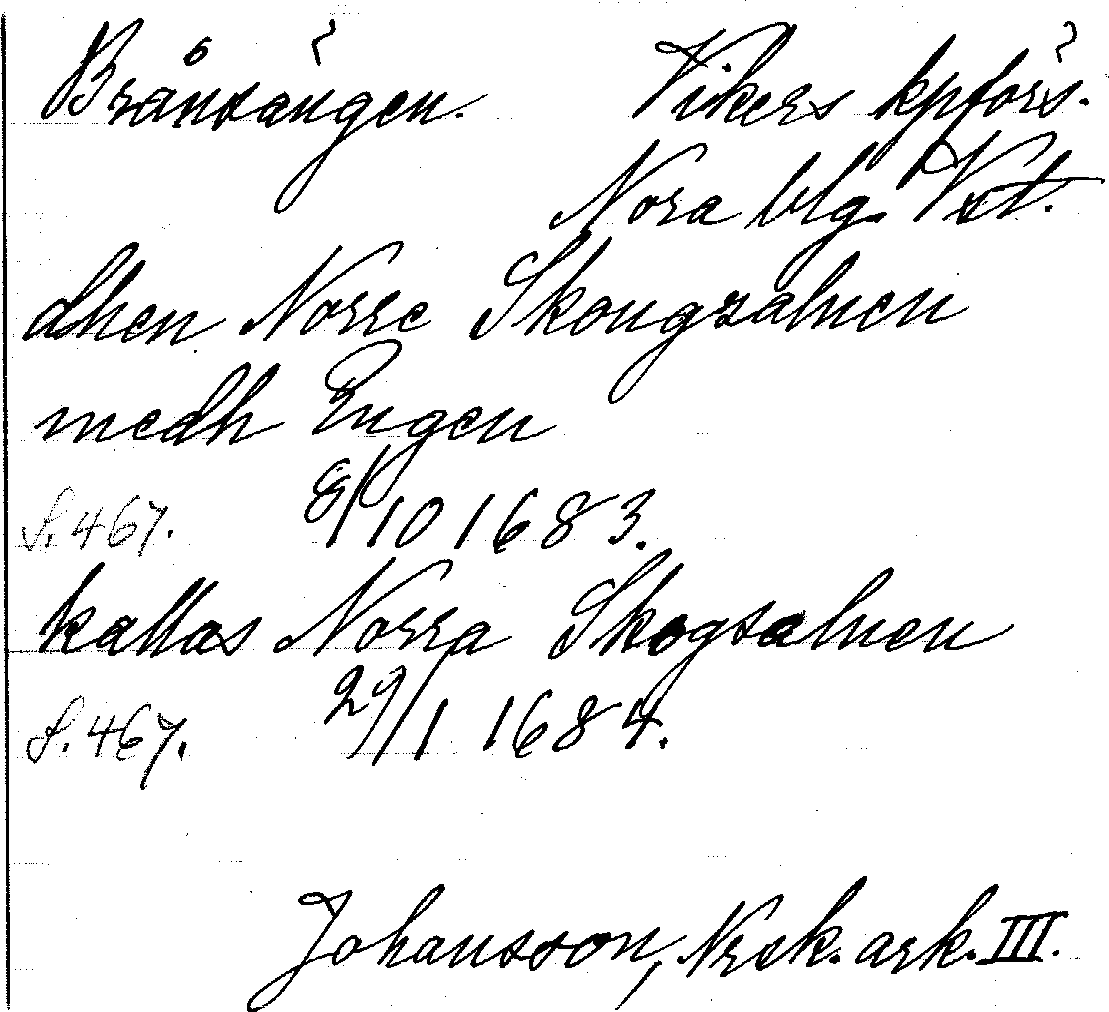 Brånsängen. Vikers kpförs.
Nora blg. Vst.
dhen Norre Skougzalmen
medh Engen
S. 467. 8/10 1683.
kallas Norra Skogsalmen
S. 467. 29/1 1684.
Johansson, Nrsk. ark. III.